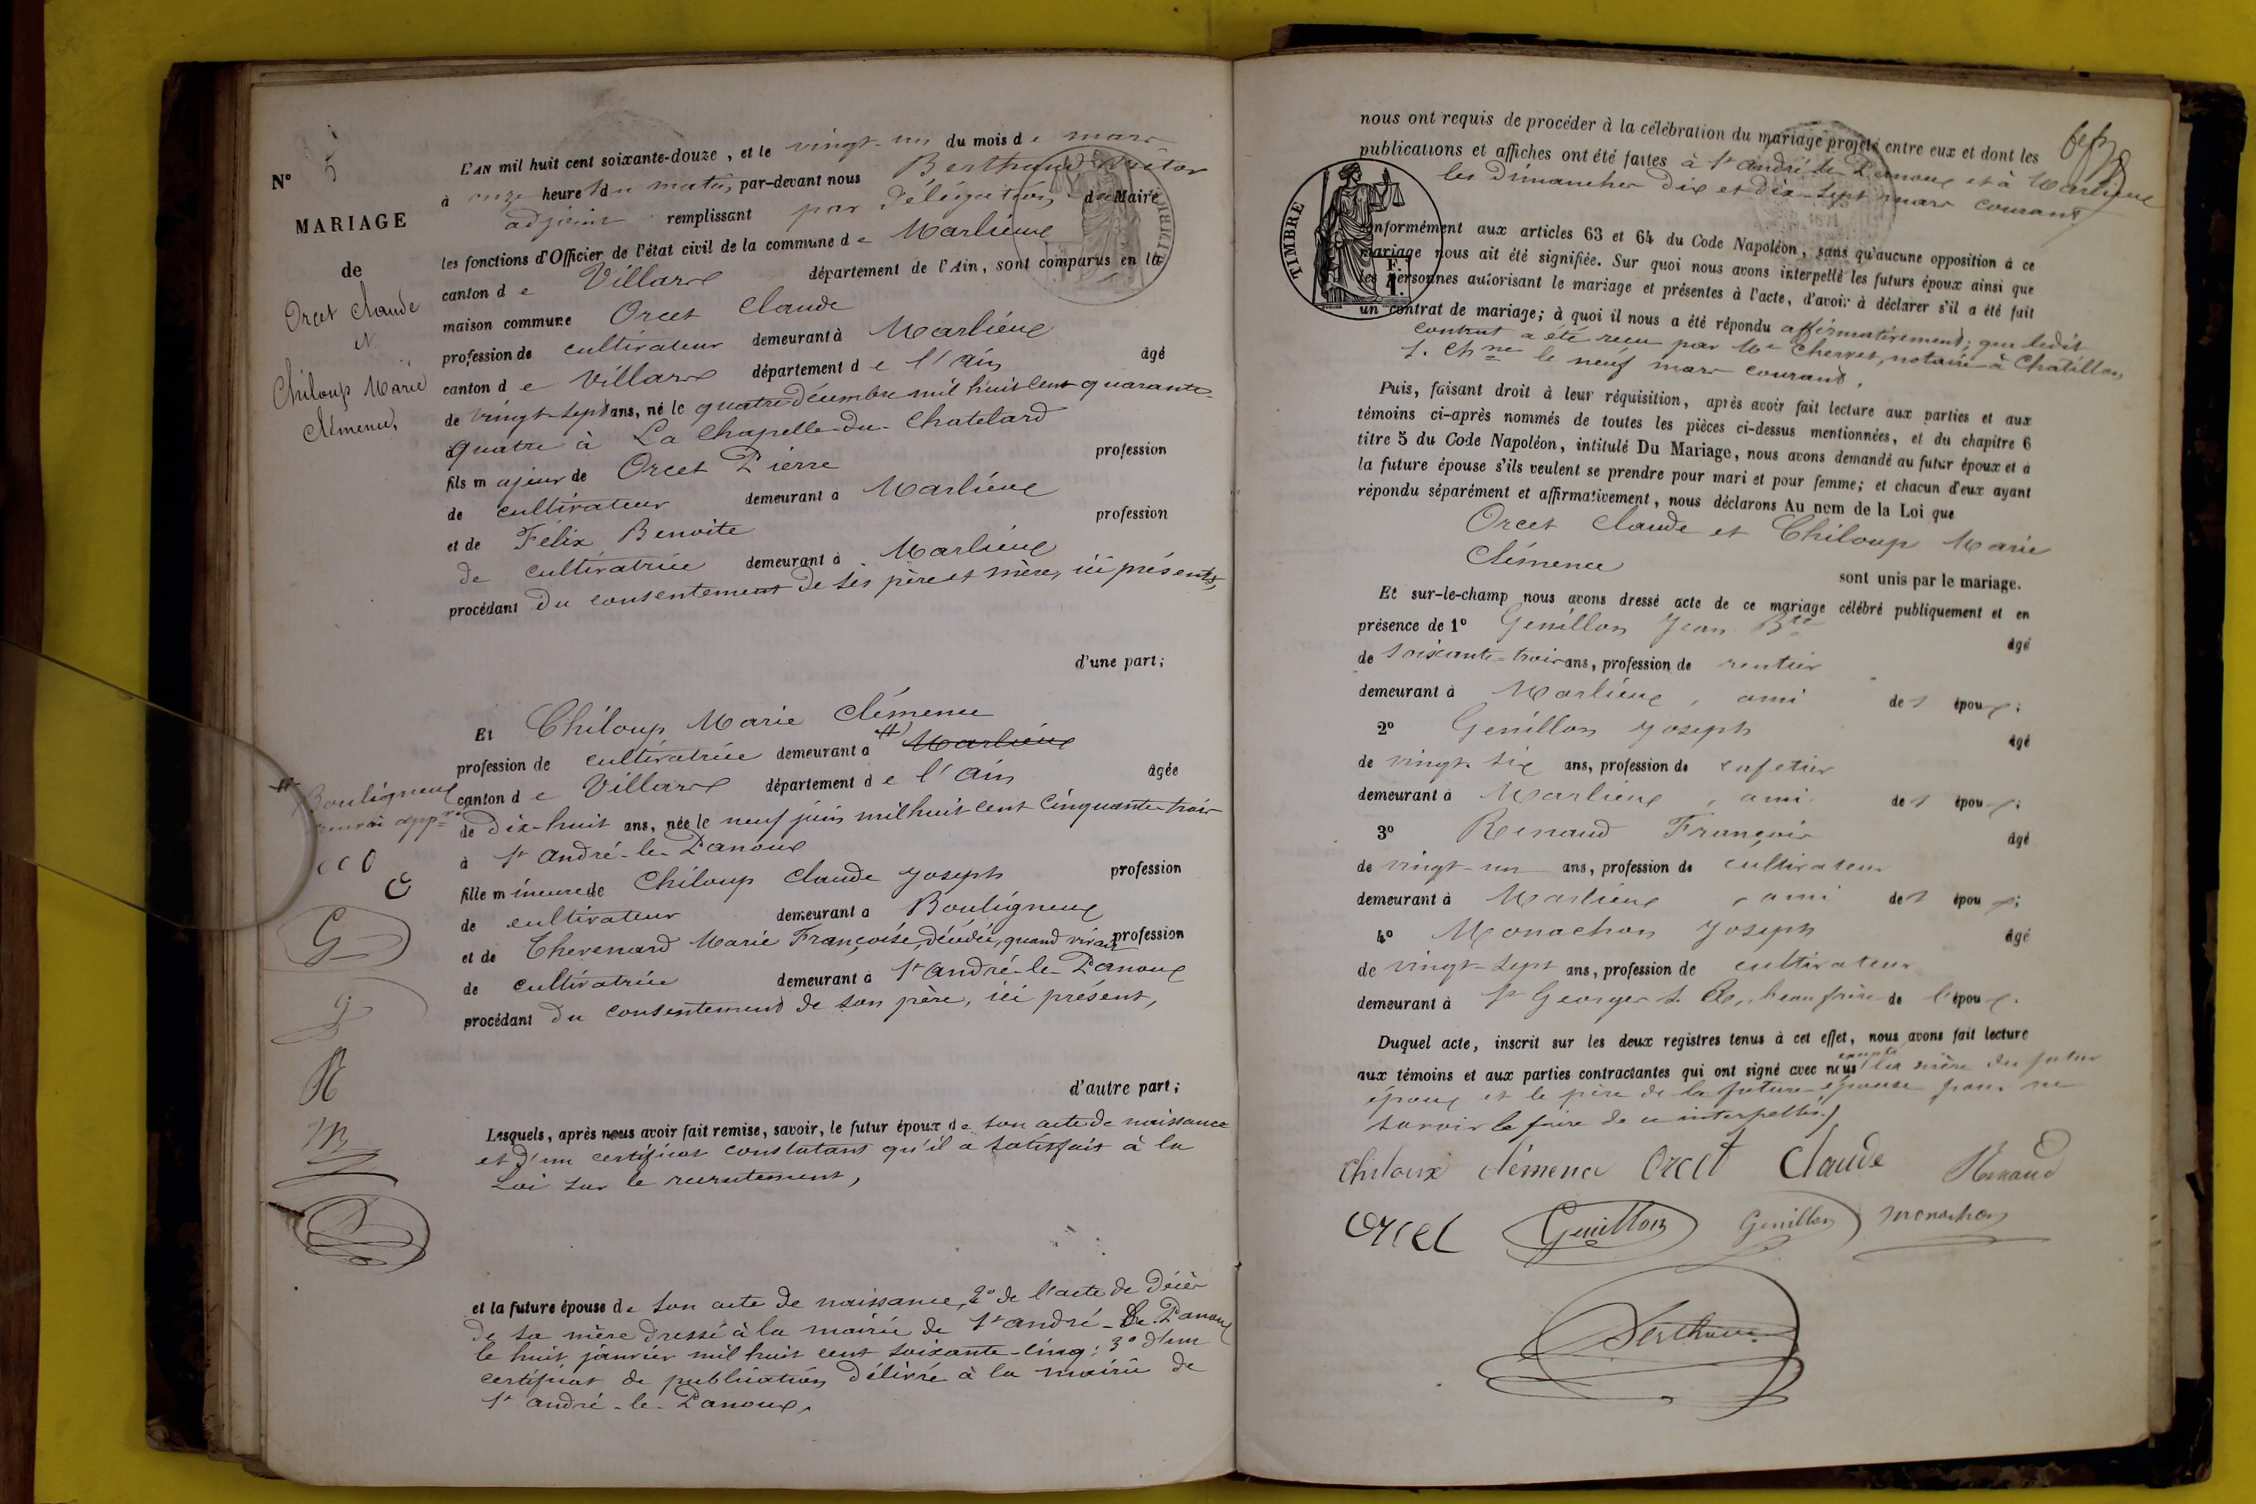 N° 5
MARIAGE
de
Orcet Claude
&
Chiloup Marie
Clémence
L'AN mil huit cent soixante-douze, et le vingt-un du mois de mars
à onze heures du matin, par-devant nous Berthaud Victor
adjoint remplissant par délégation du Maire
les fonctions d'Officier de l'état civil de la commune de Marlieux
canton de Villars département de l'Ain, sont comparus en la
maison commune Orcet Claude
profession de cultivateur demeurant à Marlieux
canton de Villars département de l'Ain âgé
de vingt-sept ans, né le quatre décembre mil huit cent quarante-
quatre à La Chapelle-du-Chatelard
fils majeur de Orcet Pierre profession
de cultivateur demeurant à Marlieux
et de Félix Benoite profession
de cultivatrice demeurant à Marlieux
procédant du consentement de ses père et mère, ici présents,
d'une part;
Et Chiloup Marie Clémence
profession de cultivatrice demeurant à Marlieux
canton de Villars département de l'Ain âgée
Bouligneux
renvoi app.
de dix-huit ans, née le neuf juin mil huit cent cinquante-trois
à St André-le-Panoux
fille mineure de Chiloup Claude Joseph profession
de cultivateur demeurant à Bouligneux
et de Thevenard Marie Françoise, décédée, quand vivait profession
de cultivatrice demeurant à St André-le-Panoux
procédant du consentement de son père, ici présent,
d'autre part;
Lesquels, après nous avoir fait remise, savoir, le futur époux de son acte de naissance
et d'un certificat constatant qu'il a satisfait à la
Loi sur le recrutement,
et la future épouse de son acte de naissance, 2° de l'acte de décès
de sa mère dressé à la mairie de St André-le-Panoux
le huit janvier mil huit cent soixante-cinq: 3° d'un
certificat de publication délivré à la mairie de
St André-le-Panoux,
nous ont requis de procéder à la célébration du mariage projeté entre eux et dont les
publications et affiches ont été faites à St André-le-Panoux et à Marlieux
les Dimanches dix et dix-sept mars courant
TIMBRE
conformément aux articles 63 et 64 du Code Napoléon, sans qu'aucune opposition à ce
mariage nous ait été signifiée. Sur quoi nous avons interpellé les futurs époux ainsi que
les personnes autorisant le mariage et présentes à l'acte, d'avoir à déclarer s'il a été fait
un contrat de mariage; à quoi il nous a été répondu affirmativement; que ledit
contrat a été reçu par Me Chervet, notaire à Châtillon
s. Chne le neuf mars courant,
Puis, faisant droit à leur réquisition, après avoir fait lecture aux parties et aux
témoins ci-après nommés de toutes les pièces ci-dessus mentionnées, et du chapitre 6
titre 5 du Code Napoléon, intitulé Du Mariage, nous avons demandé au futur époux et à
la future épouse s'ils veulent se prendre pour mari et pour femme; et chacun d'eux ayant
répondu séparément et affirmativement, nous déclarons Au nom de la Loi que
Orcet Claude et Chiloup Marie
Clémence
sont unis par le mariage.
Et sur-le-champ nous avons dressé acte de ce mariage célébré publiquement et en
présence de 1° Genillon Jean Bte âgé
de soixante-trois ans, profession de rentier
demeurant à Marlieux, ami des époux;
2° Genillon Joseph âgé
de vingt-six ans, profession de cafetier
demeurant à Marlieux, ami des époux;
3° Renaud François âgé
de vingt-un ans, profession de cultivateur
demeurant à Marlieux, ami des époux;
4° Monachon Joseph âgé
de vingt-sept ans, profession de cultivateur
demeurant à St Georges s. R., beau frère de l'époux.
Duquel acte, inscrit sur les deux registres tenus à cet effet, nous avons fait lecture
aux témoins et aux parties contractantes qui ont signé avec nous excepté la mère du futur
époux et le père de la future épouse pour ne
savoir le faire de ce interpellés.
Chiloux Clémence Orcet Claude Renaud
Orcel Genillon Genillon Monachon
Berthaud